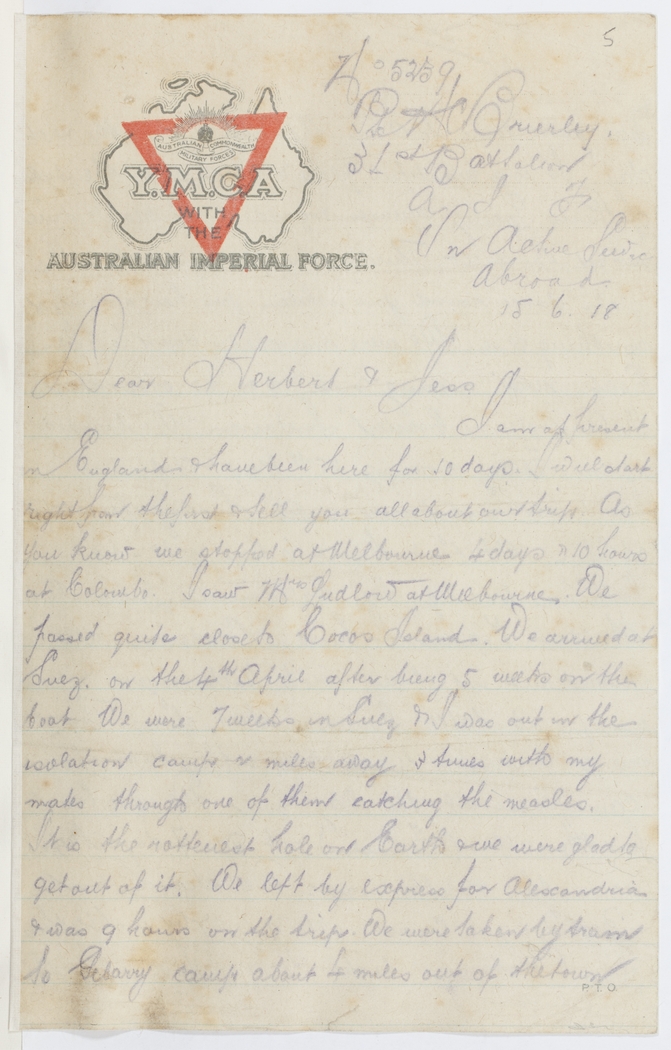 5
No 5259
Pte H C Brierley.
31st Battalion
A I F
On Active Serv.
Abroad.
15 6. 18
AUSTRALIAN COMMONWEALTH
MILITARY FORCES
Y.M.C.A
WITH
THE
AUSTRALIAN IMPERIAL FORCE.
Dear Herbert & Jess
I am at present
in England & have been here for 10 days. I will start
right from the first & tell you all about our trip. As
you know we stopped at Melbourne 4 days & 10 hours
at Colombo. I saw Mrs Ludlow at Melbourne. We
passed quite close to Cocos Island. We arrived at
Suez. on the 4th April after being 5 weeks on the
boat We were 7 weeks in Suez & I was out in the
isolation camp 2 miles away 3 times with my
mates through one of them catching the measles.
It is the rottenest hole on Earth & we were glad to
get out of it. We left by express for Alexandria
& was 9 hours on the trip. We were taken by tram
to camp about 4 miles out of the town
P.T.O.